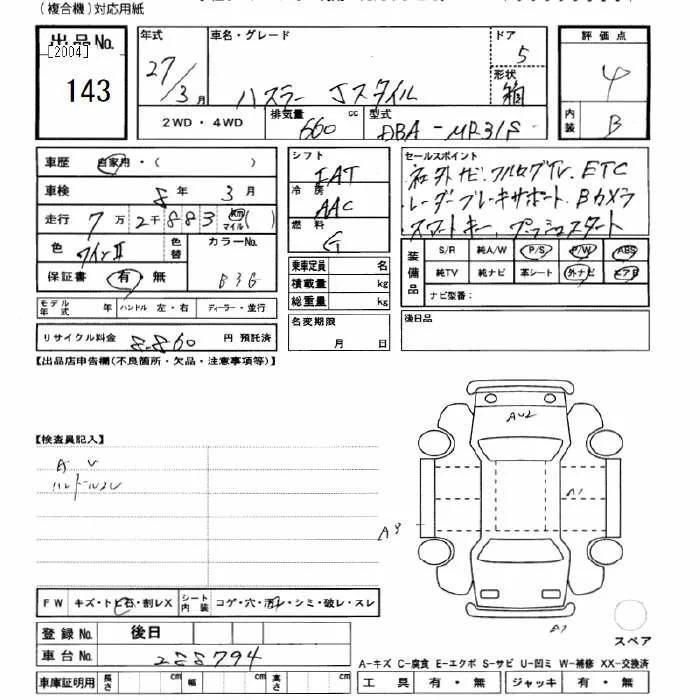 (複合機)対応用紙
出品No.
[2004]
143
年式
27/3月
車名・グレード
ハスラー Jスタイル
ドア
5
形状
箱
評価点
4
内装
B
2WD・4WD
排気量
660 cc
型式
DBA-MR31S
車歴 自家用・( )
車検 8年 3月
走行 7万2千883 km マイル ( )
色 ワインII
色替
カラーNo.
保証書 有・無
モデル年式 年 ハンドル 左・右 ディーラー・並行
リサイクル料金 8,860 円 預託済
シフト
IAT
冷房
AAC
燃料
G
乗車定員 名
積載量 kg
総重量 kg
名変期限
月 日
セールスポイント
社外ナビ.フルセグTV.ETC
レーダーブレーキサポート.Bカメラ
スマートキー.プッシュスタート
装備品
S/R 純A/W P/S P/W ABS
純TV 純ナビ 革シート 外ナビ エアB
ナビ型番:
後日品
【出品店申告欄(不良箇所・欠品・注意事項等)】
【検査員記入】
A U
ハンドルスレ
AU2
A1
FW キズ・トビ石・割レX シート内装 コゲ・穴・汚レ・シミ・破レ・スレ
登録No. 後日
車台No. 288794
車庫証明用 長さ cm 幅 cm 高さ cm
スペア
A-キズ C-腐食 E-エクボ S-サビ U-凹ミ W-補修 XX-交換済
工具 有・無 ジャッキ 有・無